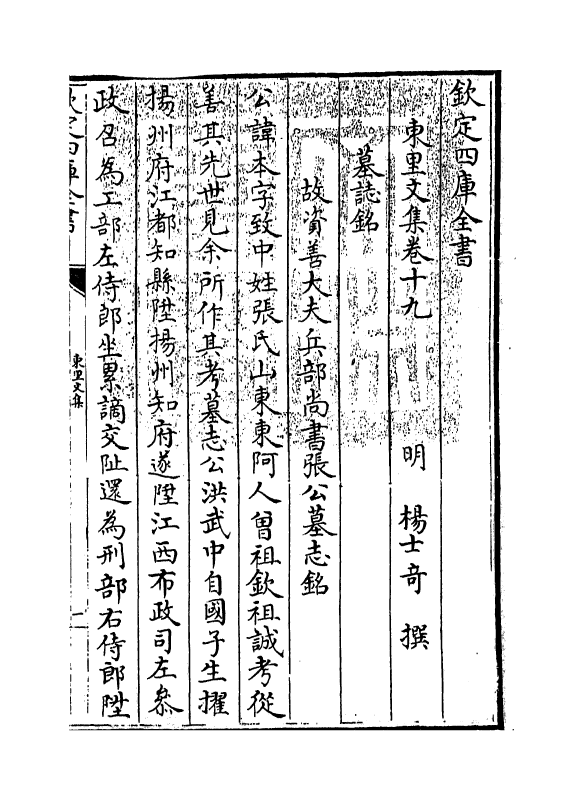 欽定四庫全書
東里文集卷十九
明 楊士竒 撰
墓誌銘
故資善大夫兵部尚書張公墓志銘
公諱本字致中姓張氏山東東阿人曾祖欽祖誠考從
善其先世見余所作其考墓志公洪武中自國子生擢
揚州府江都知縣陞揚州知府遂陞江西布政司左叅
政召為工部左侍郎坐累謫交阯還為刑部右侍郎陞
欽定四庫全書
東里文集
一